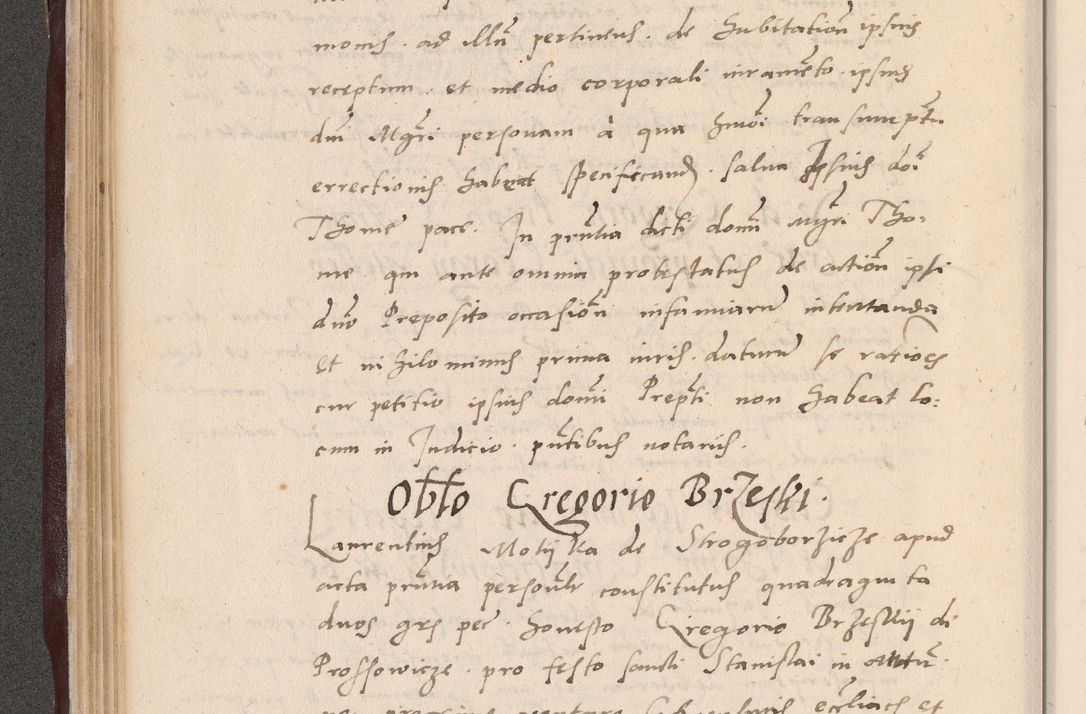 monis . ad illu͂ pertinens . de habitation͂ ipsius
receptum . et medio corporali iuramento ipsius
dni Mgri personam à qua hmoi transumptu
errectionis habeat specificand . salua Ipsius dni
Thome pace . In pntia dicti domi Mgri Tho:
me . qui ante omnia protestatus de action͂ ipsi
dno Preposito occasion͂ infamiarum intentanda
et nihilominus prima iuris . daturum se ratioes
cur petitio ipsius domi Prepti non habeat lo:
cum in Judicio . pntibus notariis .
Obłło Gregorio Brzeski .
Laurentius Motijka de Strogoborzicze apud
acta pntia personalr constitutus quadraginta
duos grs pec . honesto Gregorio Brzeskij de
Prossowicze . pro festo sancti Stanislai in
ecclliacs et